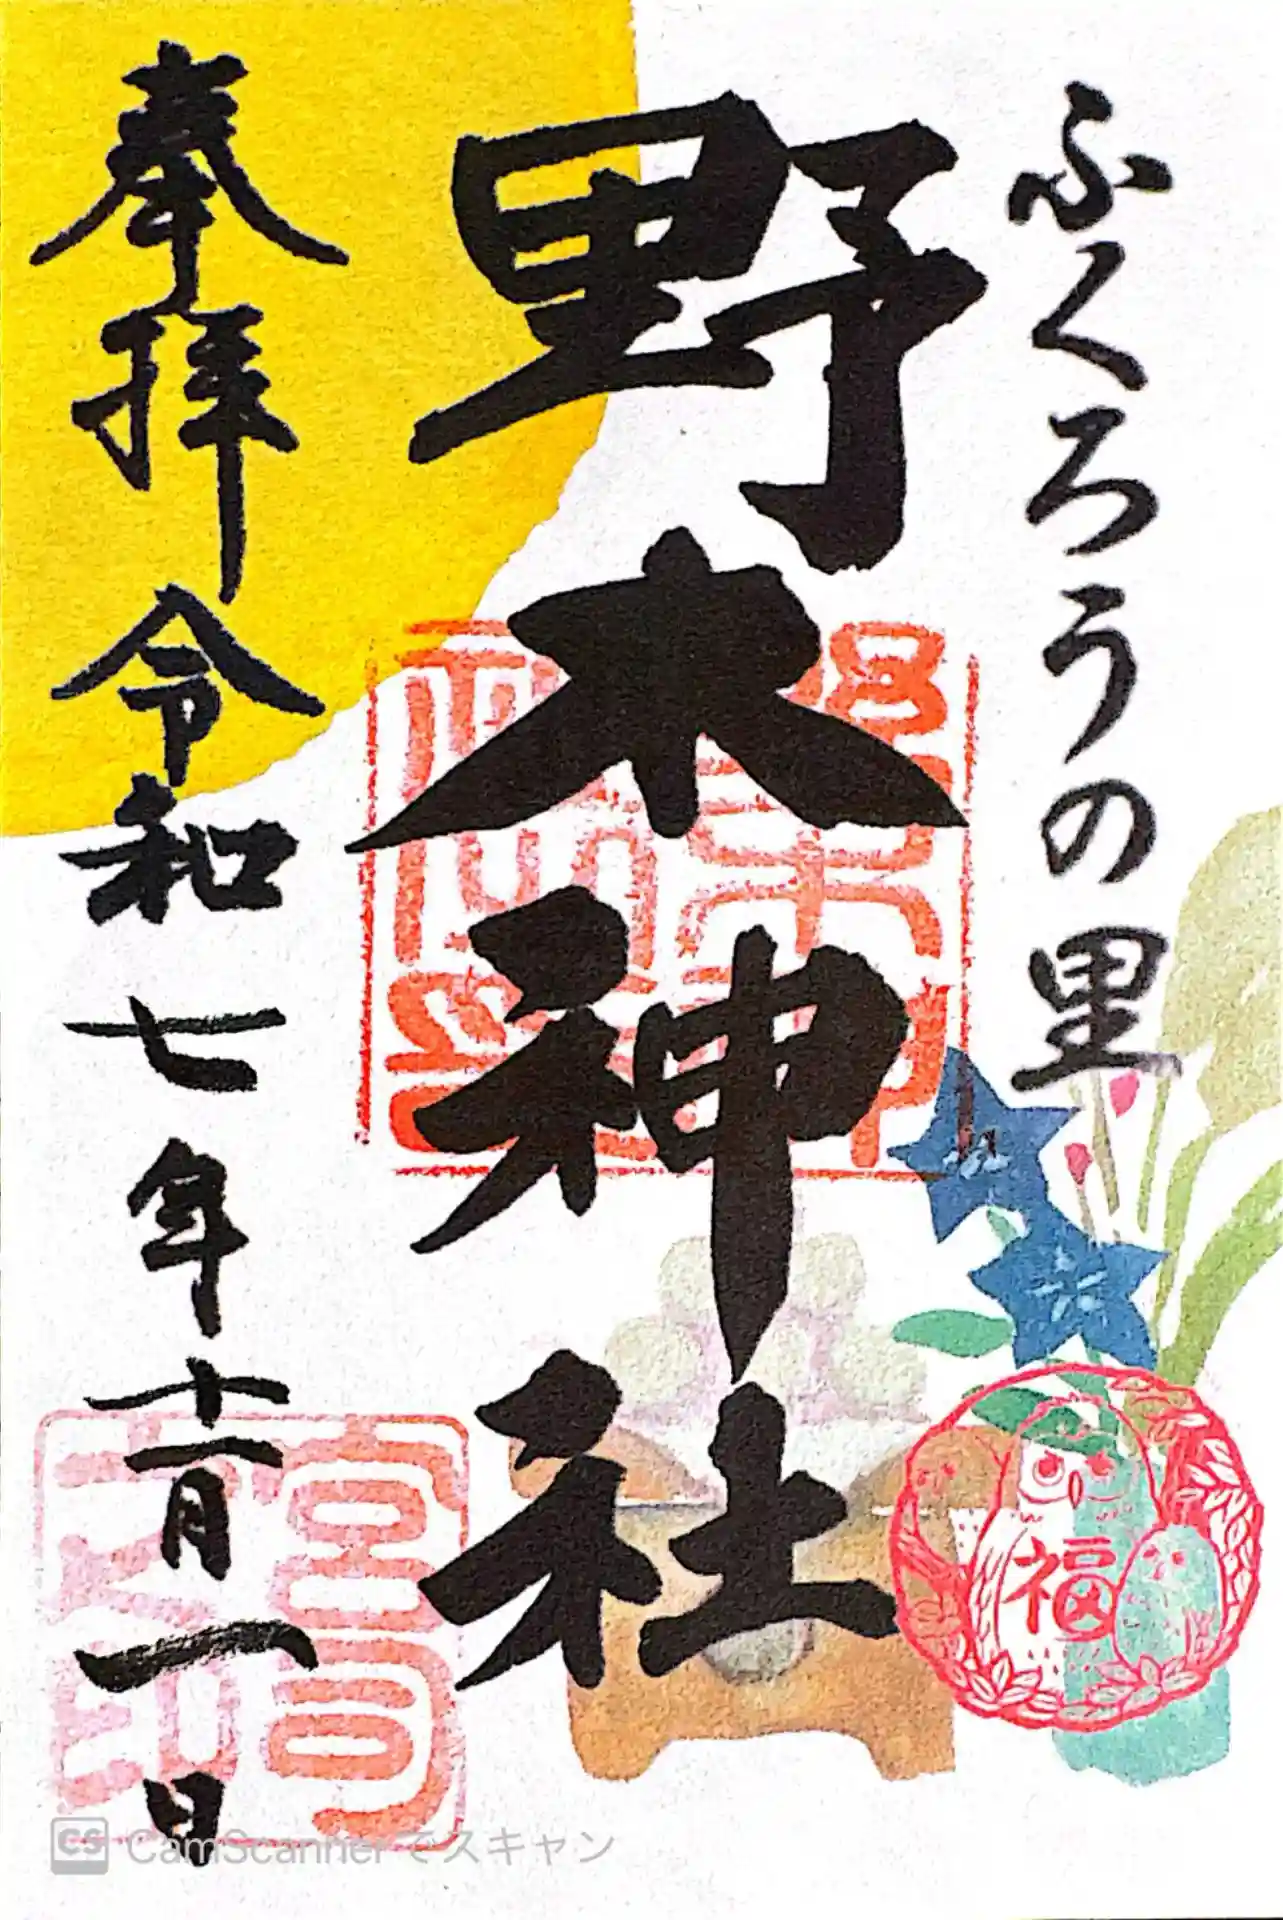 ふくろうの里
野木神社
奉拝 令和七年十一月一日
福
宮司之印
CS CamScannerでスキャン